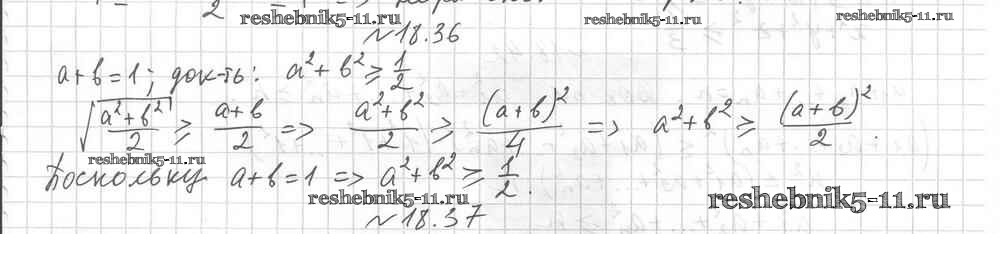 reshebnik5-11.ru reshebnik5-11.ru reshebnik5-11.ru
№18.36
a+b=1; док-ть: a²+b² ≥ 1/2
√((a²+b²)/2) ≥ (a+b)/2 => (a²+b²)/2 ≥ (a+b)²/4 => a²+b² ≥ (a+b)²/2.
reshebnik5-11.ru
Поскольку a+b=1 => a²+b² ≥ 1/2.
reshebnik5-11.ru reshebnik5-11.ru
№18.37